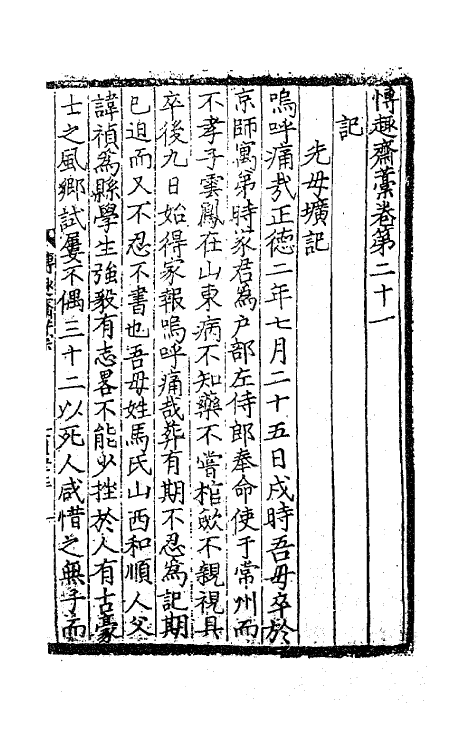 博趣齋藁卷第二十一
記
先母壙記
嗚呼痛哉正德二年七月二十五日戌時吾母卒於
京師寓第時家君為户部左侍郎奉命使于常州而
不孝子雲鳳在山東病不知藥不嘗棺歛不親視具
卒後九日始得家報嗚呼痛哉葬有期不忍為記期
已迫而又不忍不書也吾母姓馬氏山西和順人父
諱禎為縣學生強毅有志畧不能少挫於人有古豪
士之風鄉試屢不偶三十二以死人咸惜之無子而